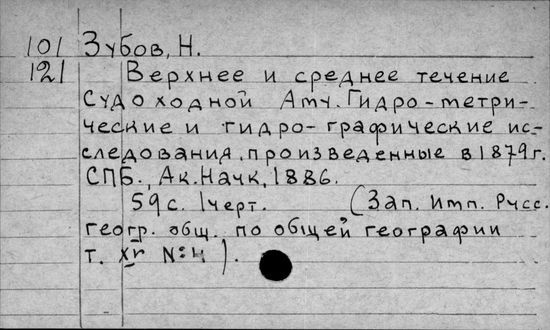 101 Зубов, Н.
121 Верхнее и среднее течение
судоходной Аму. Гидро-метри-
ческие и гидро-графические ис-
следования, произведенные в 1879 г.
СПБ., Ак. Наук, 1886.
59 с. 1 черт. (Зап. Имп. Русс.
геогр. общ. по общей географии
т. XV № 4).